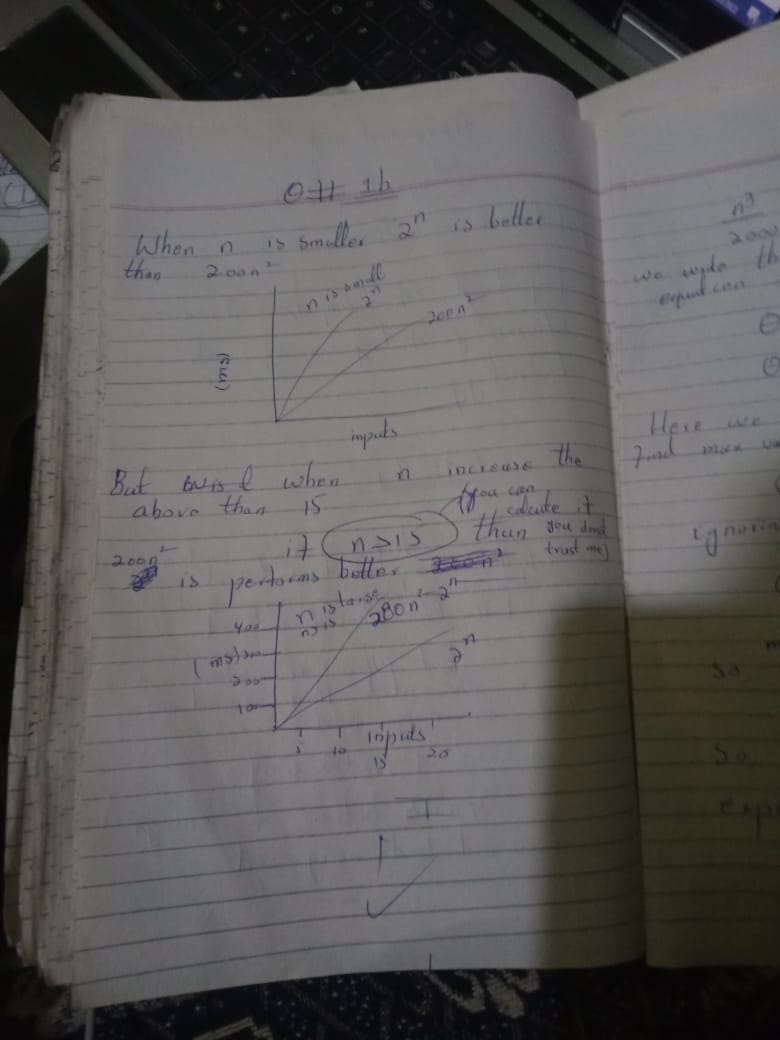 Q# 1b
When n is smaller 2^n is better
than 200n^2
n is small
2^n
200n^2
(ms)
inputs
But when n increase the
above than 15
(you can
calcute it
if n>15 then you dont
trust me)
200n^2
is performs better
n is large
n>15
2^n
400
(ms) 300
200
100
2^n
inputs
5 10 15 20
n^3
2000
we wide th
Here we
find max va
ignorin
So
So,
exp